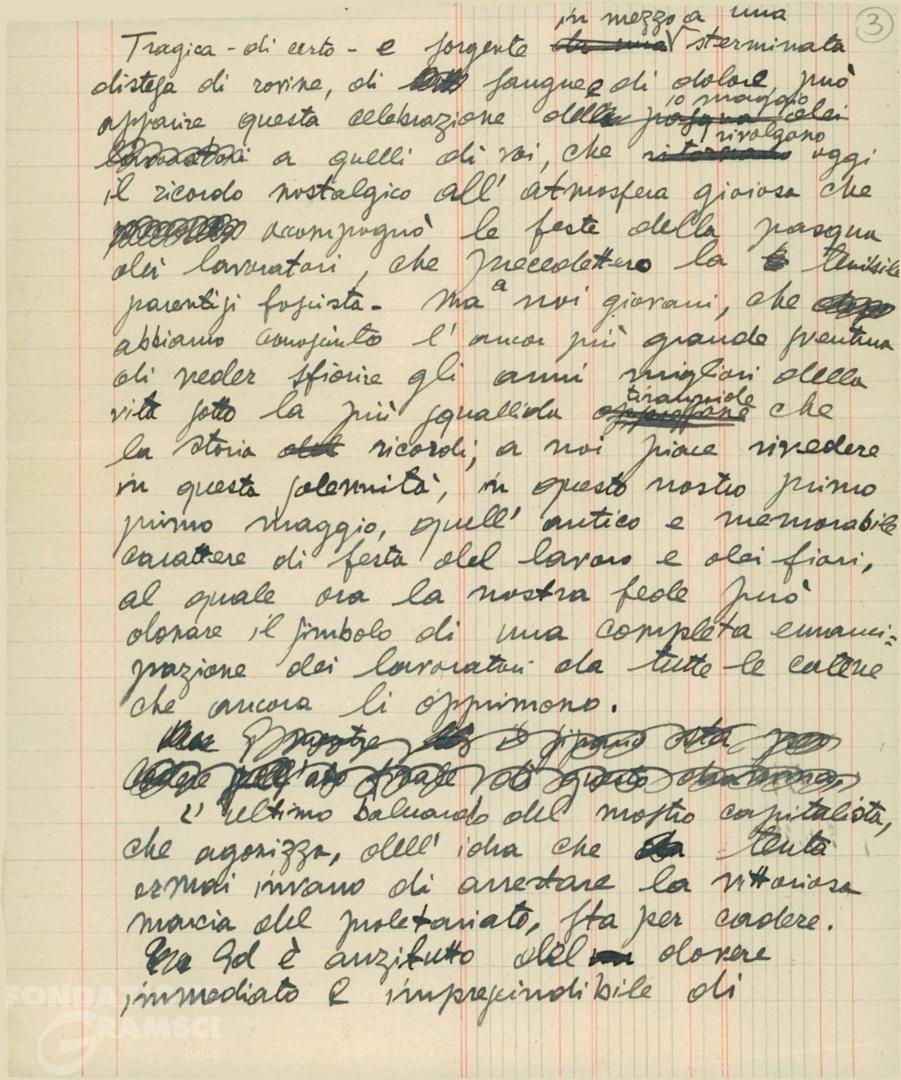 3
in mezzo a una
Tragica - di certo - e sorgente di una sterminata
distesa di rovine, di sangue e di dolore può
1o maggio
apparire questa celebrazione della pasqua dei
rivolgono
lavoratori a quelli di voi, che ritornano oggi
il ricordo nostalgico all' atmosfera gioiosa che
accompagnò le feste della pasqua
dei lavoratori, che precedettero la terribile
parentesi fascista - Ma a noi giovani, che
abbiamo conosciuto l' ancor più grande sventura
di veder sfiorire gli anni migliori della
tirannide
vita sotto la più squallida oppressione che
la storia ricordi; a noi piace rivedere
in questa solennità, in questo nostro primo
primo maggio, quell' antico e memorabile
carattere di festa del lavoro e dei fiori,
al quale ora la nostra fede può
donare il simbolo di una completa emanci=
pazione dei lavoratori da tutte le catene
che ancora li opprimono.
L' ultimo baluardo del mostro capitalista,
che agonizza, dell' idra che tenta
ormai invano di arrestare la vittoriosa
marcia del proletariato, sta per cadere.
Ed è anzitutto del dovere
immediato e imprescindibile di
FONDAZIONE
GRAMSCI
onlus